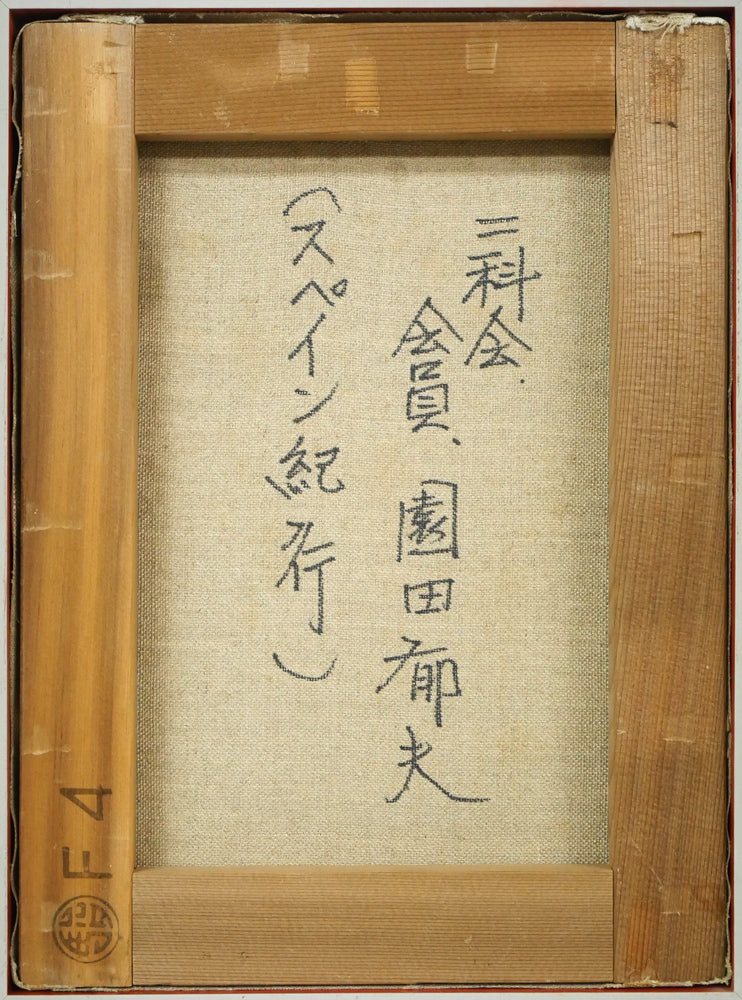 二科会.
會員、園田郁夫
(スペイン紀行)
F4